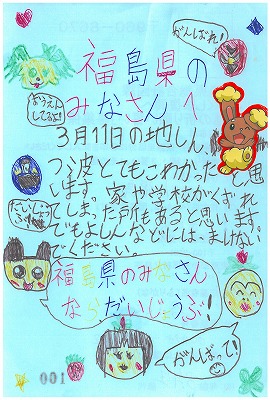 がんばれ!
福島県の
みなさんへ
おうえん
してるよ!
3月11日の地しん、
つ波とてもこわかったと思
います。家や学校がくずれ
てしまった所もあると思います。
でもよしんなどには、まけない
でください。
だいじょう
ぶ
福島県のみなさん
ならだいじょうぶ!
がんばって!
001